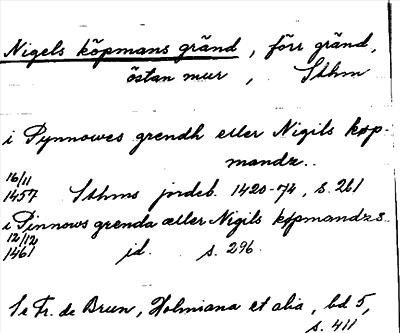 Nigels köpmans gränd, förr gränd,
östan mur, Sthm
i Pynnowes grendh eller Nigils køp-
mandz..
16/11
1457 Sthms jordeb. 1420-74, s. 261
i Pinnows grenda æller Nigils køpmandz s..
12/12
1461 id. s. 296.
Se Fr. de Brun, Holmiana et alia, bd 5,
s. 411